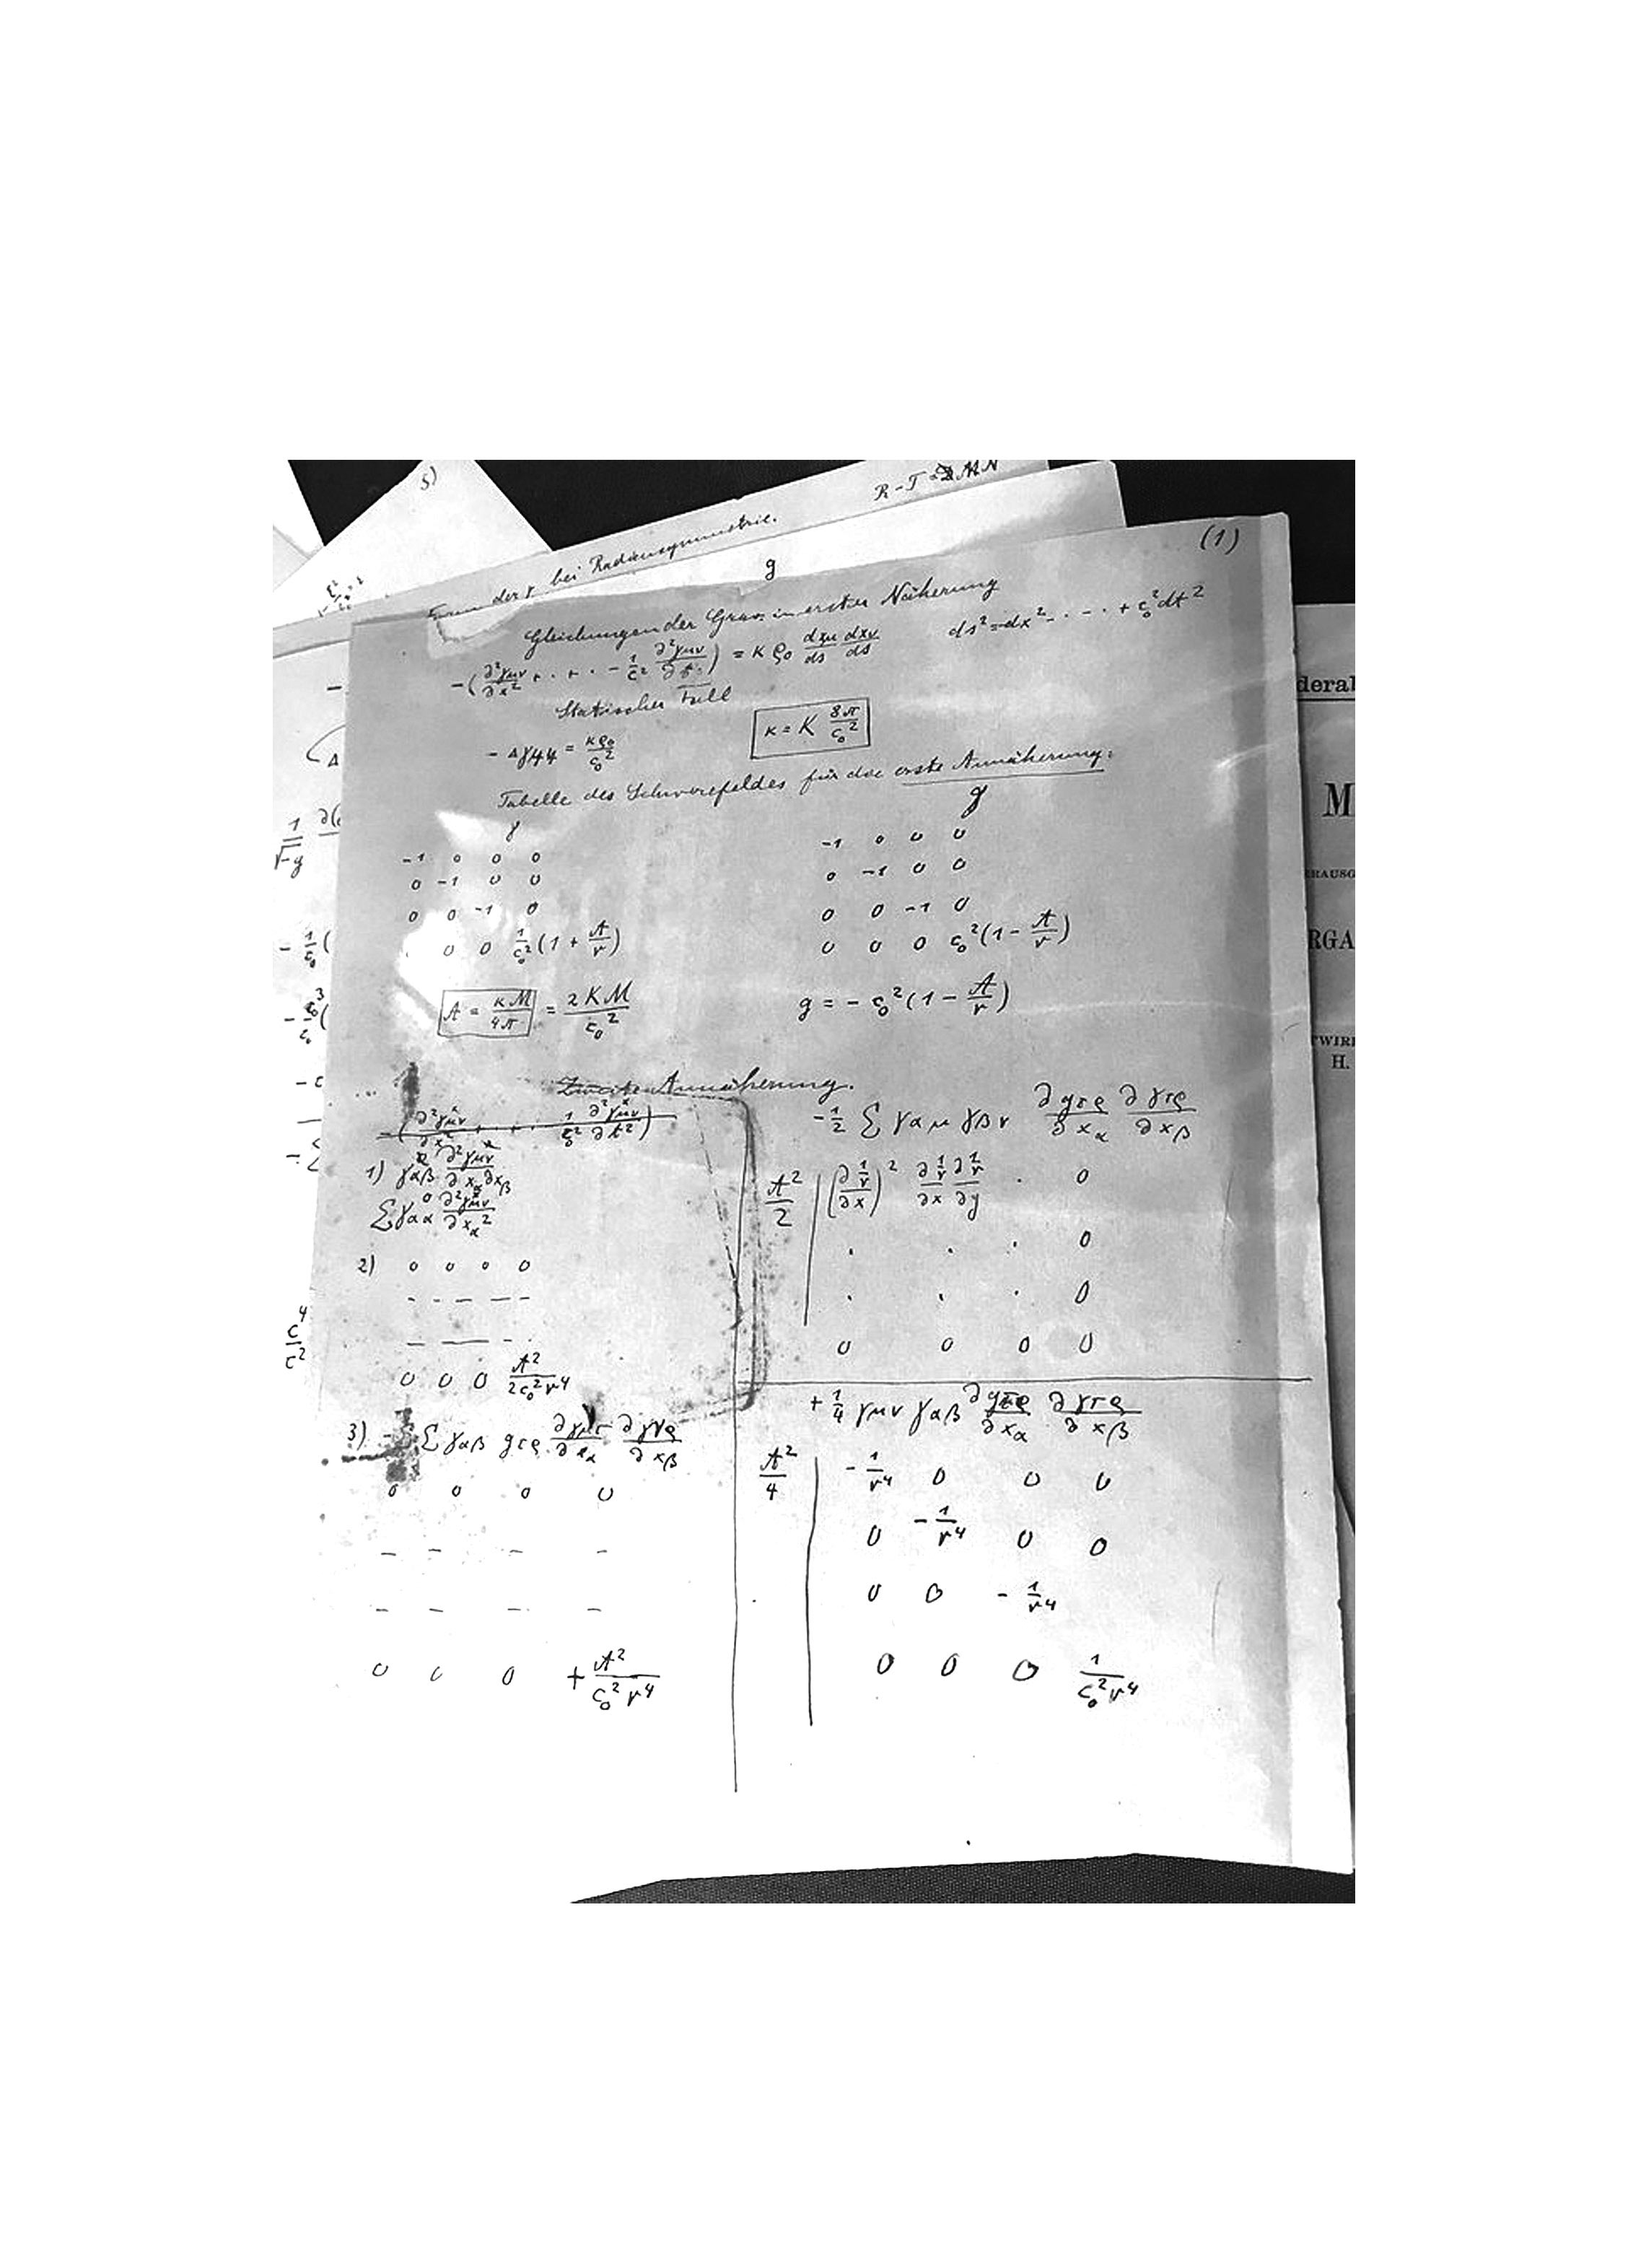 5)
R-T
bei Radiensymmetrie.
(1)
g
Gleichungen der Grav. in erster Näherung
ds² = -dx² - · - · + c₀²dt²
-(∂²γμν/∂x² + · + · - 1/c² ∂²γμν/∂t²) = κ ρ₀ dxμ/ds dxν/ds
Statischer Fall
- Δγ44 = κρ₀/c₀²
κ = K 8π/c₀²
Tabelle des Schwerefeldes für die erste Annäherung:
γ
-1 0 0 0
0 -1 0 0
0 0 -1 0
0 0 1/c₀²(1 + A/r)
g
-1 0 0 0
0 -1 0 0
0 0 -1 0
0 0 0 c₀²(1 - A/r)
A = κM/4π = 2KM/c₀²
g = - c₀²(1 - A/r)
Zweite Annäherung.
-(∂²γˣμν/∂x² + · + · 1/c₀² ∂²γˣμν/∂t²)
1) γαβ ∂²γμν/∂xα∂xβ
Σγαα ∂²γˣμν/∂xα²
2) 0 0 0 0
- - - - -
- - - -
0 0 0 A²/2c₀²r⁴
3) Σ γαβ gτρ ∂γμτ/∂xα ∂γνρ/∂xβ
0 0 0 0
- - - -
- - - -
0 0 0 + A²/c₀²r⁴
-1/2 Σ γαμ γβν ∂gτρ/∂xα ∂γτρ/∂xβ
A²/2 | (∂ 1/r/∂x)² ∂ 1/r/∂x ∂ 1/r/∂y · 0
· · · 0
· · · 0
0 0 0 0
+ 1/4 γμν γαβ ∂gτρ/∂xα ∂γτρ/∂xβ
A²/4 | -1/r⁴ 0 0 0
0 -1/r⁴ 0 0
0 0 -1/r⁴
0 0 0 1/c₀²r⁴
c⁴/c²
deral
M
ERAUSG
RGA
TWIRK
H.